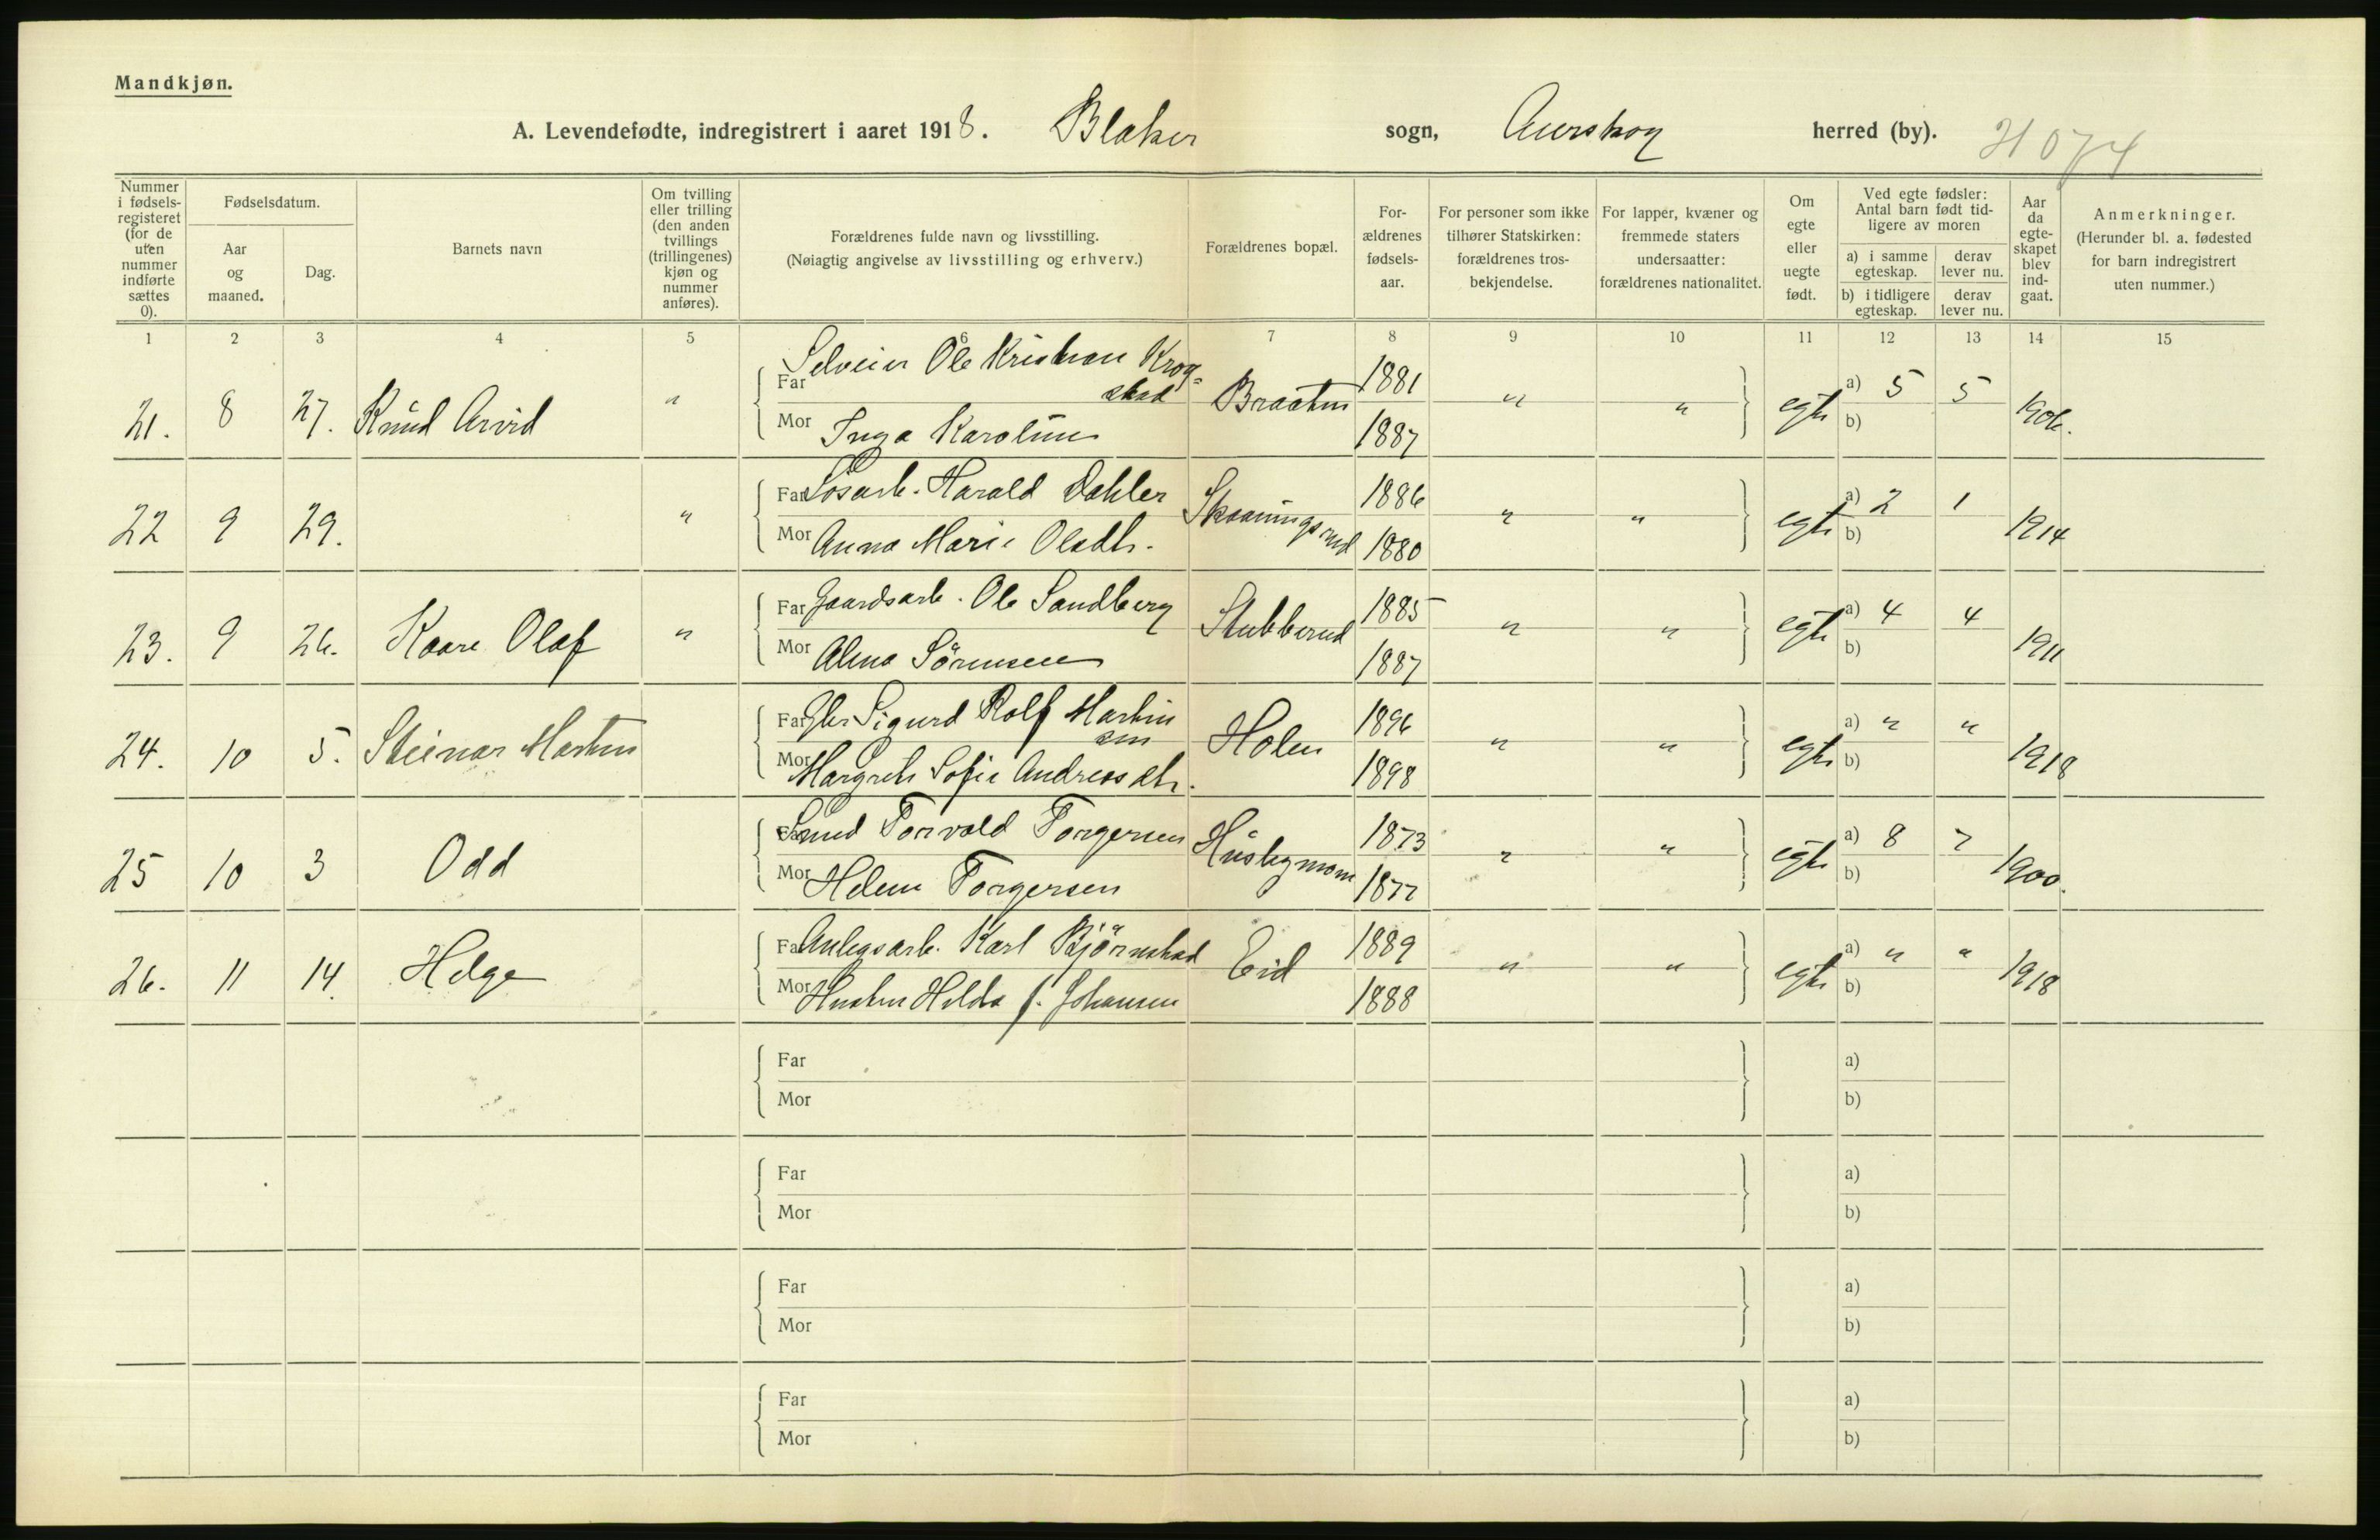 Mandkjøn.
A. Levendefødte, indregistrert i aaret 1918. Blaker sogn, Aurskog herred (by).
Nummer i fødselsregisteret (for de uten nummer indførte sættes 0).
Fødselsdatum.
Aar og maaned.
Dag.
Barnets navn
Om tvilling eller trilling (den anden tvillings (trillingenes) kjøn og nummer anføres).
Forældrenes fulde navn og livsstilling.
(Nøiagtig angivelse av livsstilling og erhverv.)
Forældrenes bopæl.
Forældrenes fødselsaar.
For personer som ikke tilhører Statskirken: forældrenes trosbekjendelse.
For lapper, kvæner og fremmede staters undersaatter: forældrenes nationalitet.
Om egte eller uegte født.
Ved egte fødsler: Antal barn født tidligere av moren
a) i samme egteskap. derav lever nu.
b) i tidligere egteskap. derav lever nu.
Aar da egteskapet blev indgaat.
Anmerkninger.
(Herunder bl. a. fødested for barn indregistrert uten nummer.)
1 2 3 4 5 6 7 8 9 10 11 12 13 14 15
21. 8 27. Knud Arvid " Far Selveier Ole Kristian Krogstad Braaten 1881 " " egte a) 5 5 1906.
Mor Inga Karoline 1887 b)
22 9 29. " Far Løsarb. Harald Dahler 1886 " " egte a) 2 1 1914
Mor Anna Marie Olsdtr. 1880 b)
23. 9 26. Kaare Olaf " Far Gaardsarb. Ole Sandberg Stubberud 1885 " " egte a) 4 4 1911
Mor Alma Sørensen 1887 b)
24. 10 5. Steinar Martin Far Sigurd Rolf Martinsen Holen 1896 " " egte a) " " 1918
Mor Margrete Sofie Andreasdtr. 1898 b)
25 10 3 Odd Far Smed Torvald Torgersen Husbymoen 1873 " " egte a) 8 7 1900.
Mor Helene Torgersen 1877 b)
26. 11 14. Helge Far Anlegsarb. Karl Bjørnstad Eid 1889 " " egte a) " " 1918
Mor Hustru Hilda f. Johansen 1888 b)
Far a)
Mor b)
Far a)
Mor b)
Far a)
Mor b)
Far a)
Mor b)